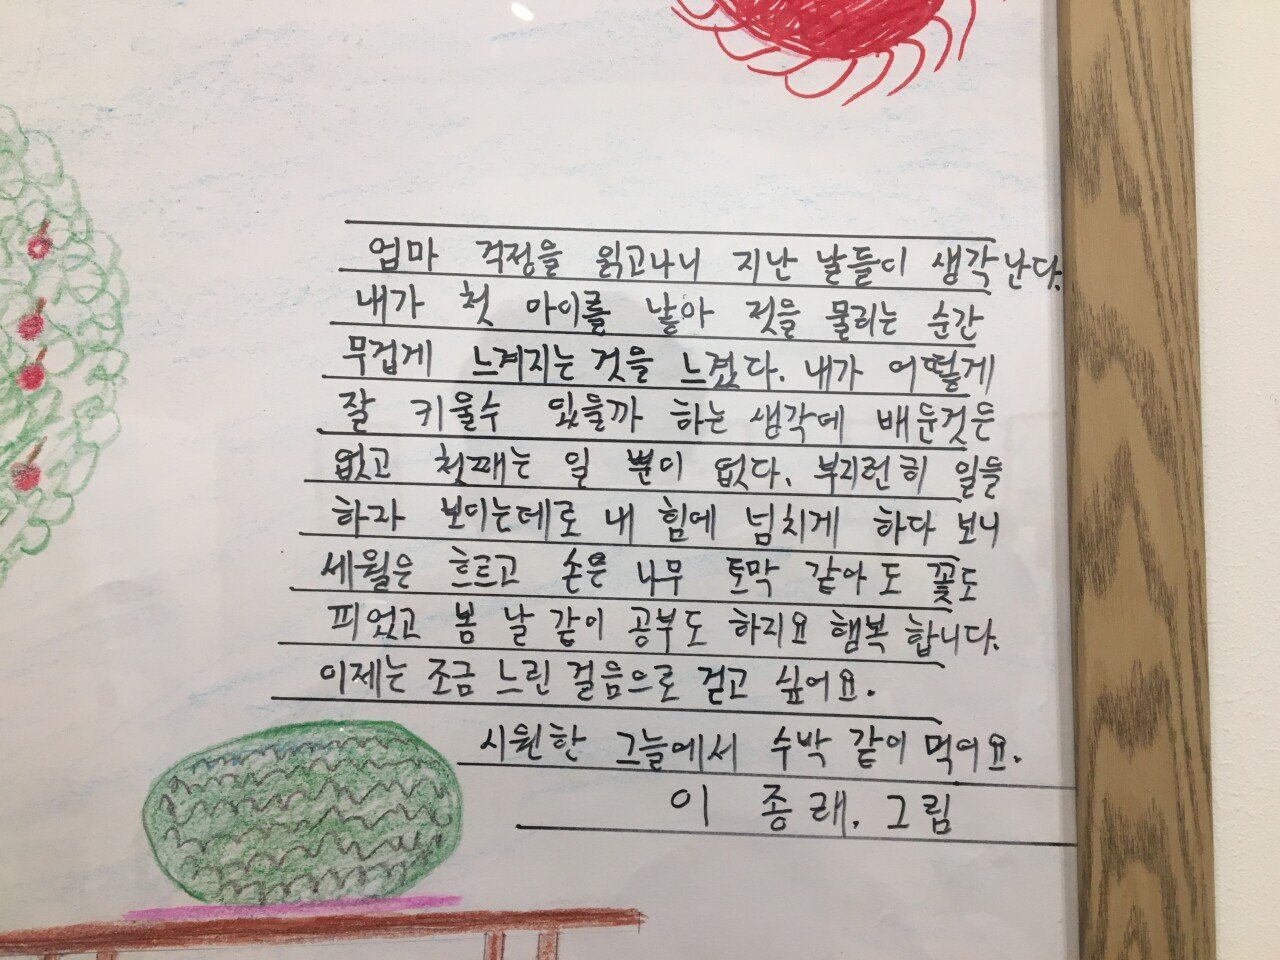 엄마 걱정을 읽고나니 지난 날들이 생각난다.
내가 첫 아이를 낳아 젓을 물리는 순간
무겁게 느겨지는 것을 느겼다. 내가 어떻게
잘 키울수 있을까 하는 생각에 배운것든
없고 첫째는 일 뿐이 없다. 부지런히 일들
하자 보이는데로 내 힘에 넘치게 하다 보니
세월은 흐르고 손은 나무 토막 같아도 꽃도
피었고 봄 날 같이 공부도 하지요 행복 합니다.
이제는 조금 느린 걸음으로 걷고 싶어요.
시원한 그늘에서 수박 같이 먹어요.
이 종래. 그림